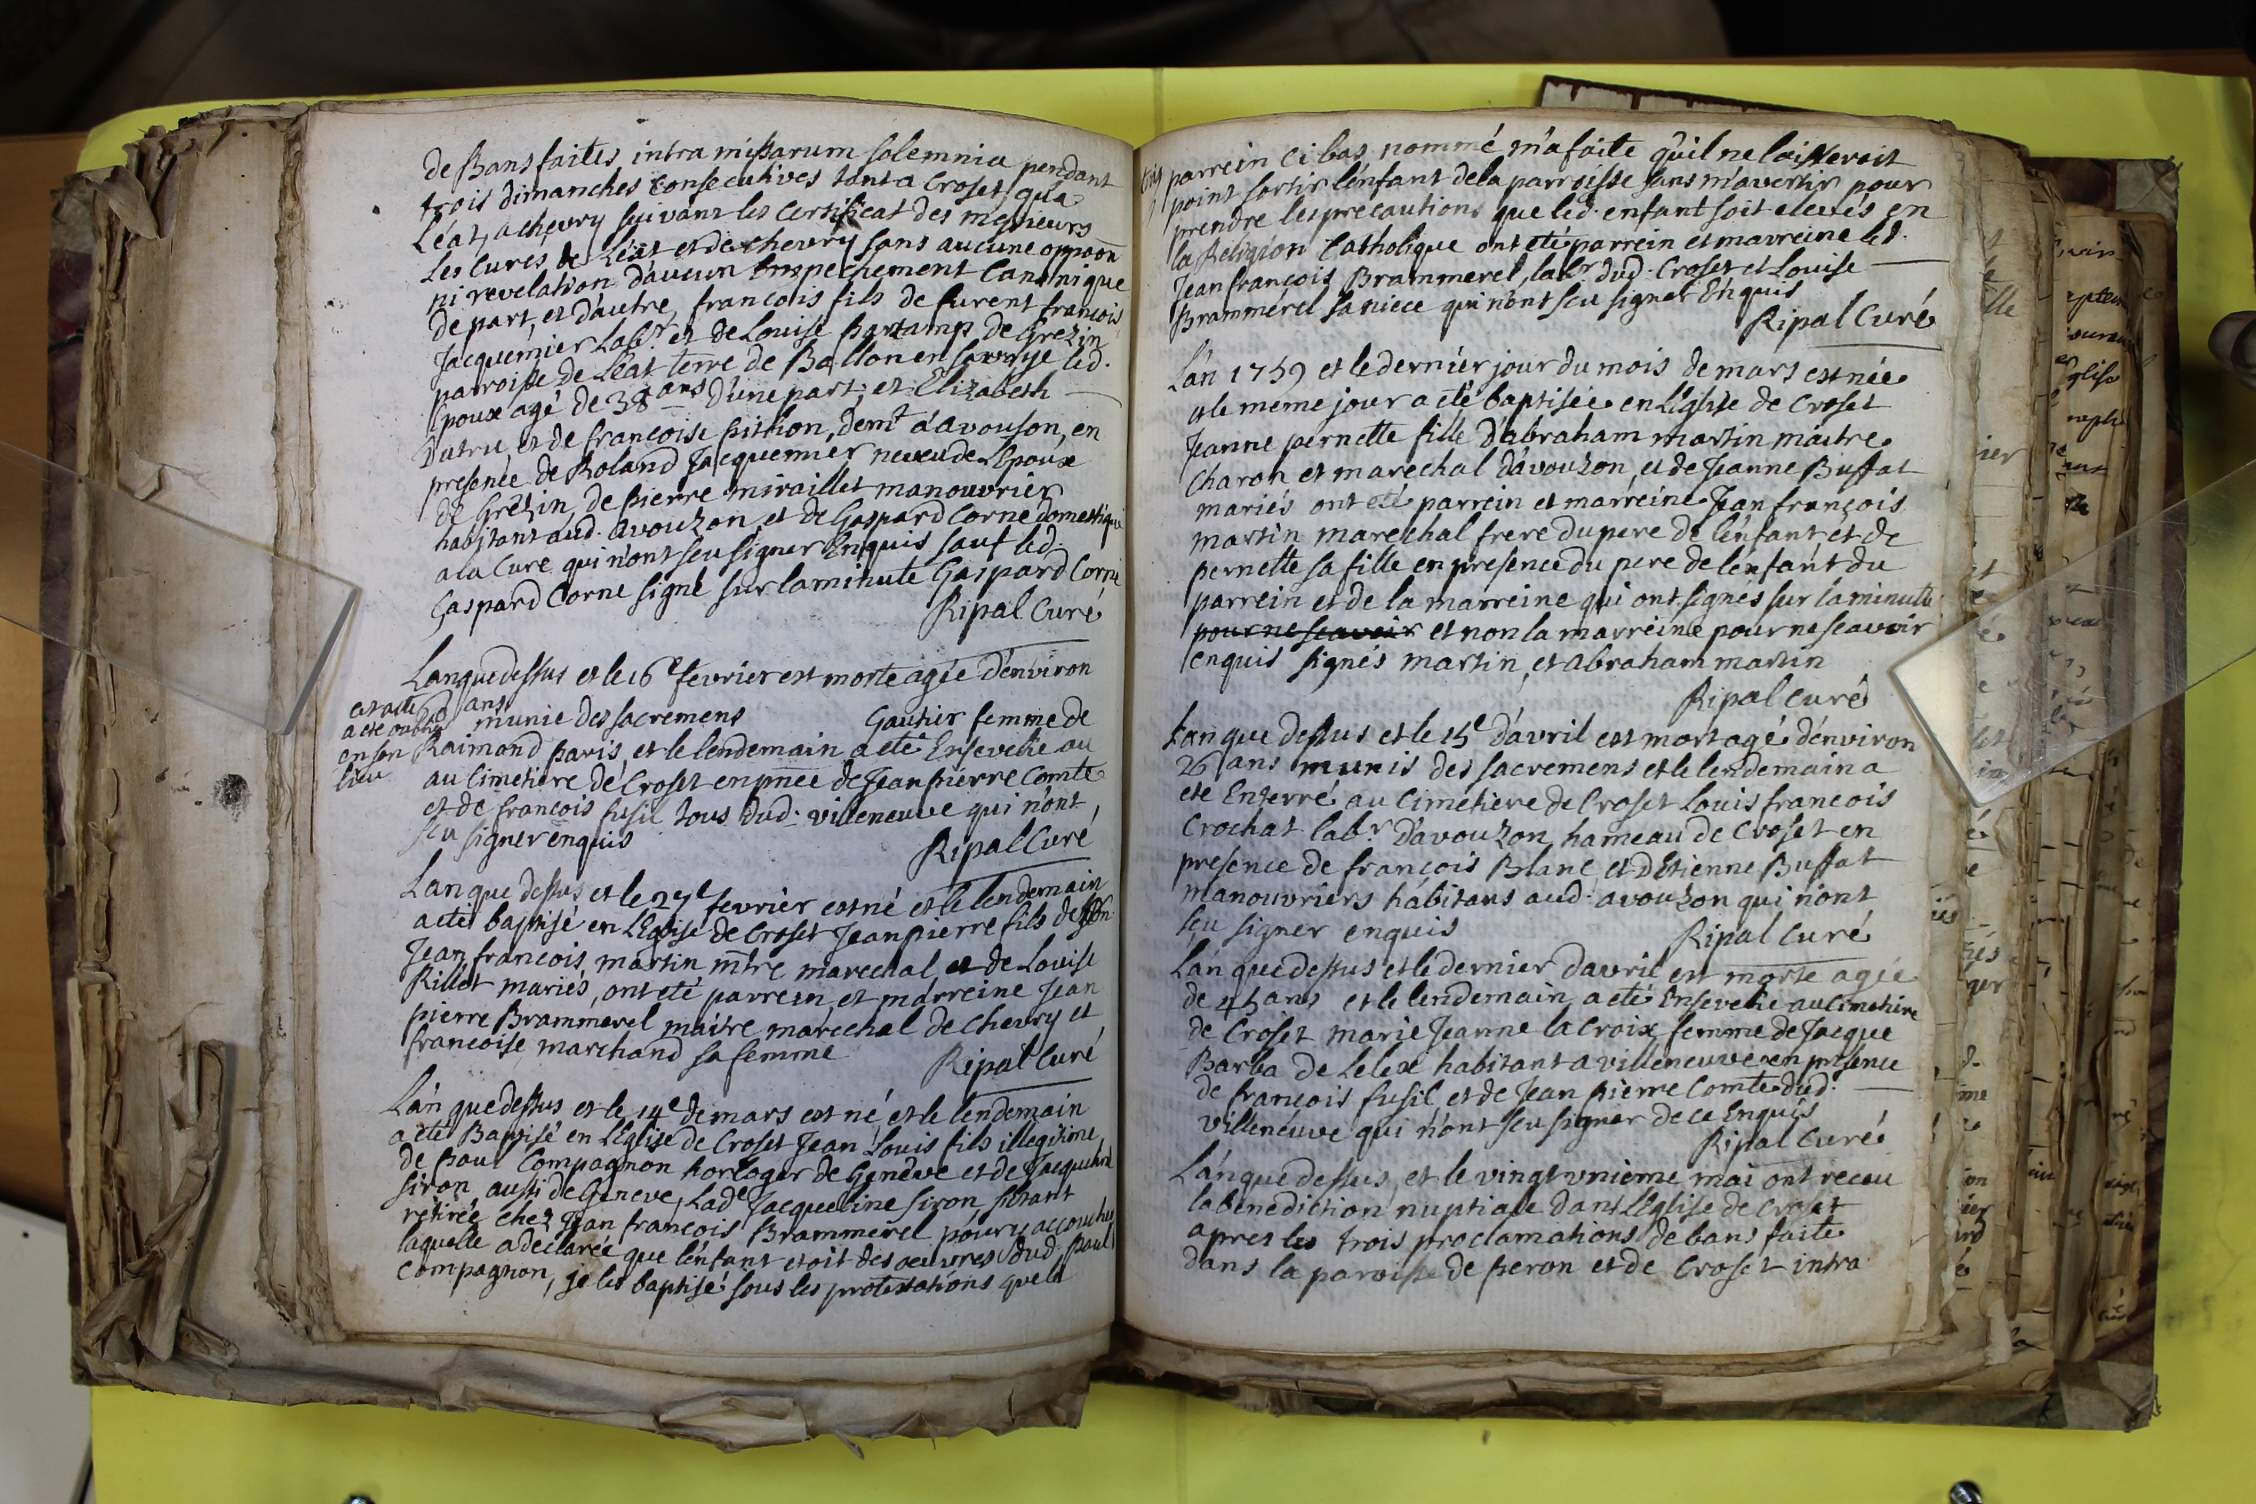 de Bans faites intra missarum solemnia pendant
trois dimanches consecutives tant a Croset qu'a
Léat, a chevry suivant les Certificat des messieurs
Les Curés de Léat et de chevry sans aucune oppaon
ni revelation d'aucun Empechement Canonique
de part, et d'autre, francois fils de furent francois
Jacquemier Labr. et de Louise Bartamp de Grezin
parroisse de Léat terre de Ballon en savoye led.
Epoux agé de 38 ans d'une part; et Elizabeth
Dutru et de francoise pithon, demt. a avouson, en
presence de Roland Jacquemier neveu de L'Epoux
de Grézin, de pierre miraillet manouvrier
habitant aud. avouzon, et de Gaspard Corne domestique
a la Cure qui n'ont seu signer Enquis sauf led.
Gaspard Corne signé sur la minute Gaspard Corne
Ripal Curé
L'an que dessus et le 16e fevrier est morte agée d'environ
ans
munie des sacremens Gautier femme de
cet acte
a été oublié
en son
lieu
Raimond paris, et le lendemain a eté Ensevelie au
au Cimetiere de Croset en pnce de Jean pierre Comte
et de francois fusil tous dud. villeneuve qui n'ont
seu signer enquis
Ripal Curé
L'an que dessus et le 27e fevrier est né et le lendemain
a eté baptisé en L'Eglise de Croset Jean pierre fils de
Jean francois martin mtre marechal et de Louise
Rillet mariés, ont eté parrein et marreine Jean
pierre Brammerel maitre maréchal de chevry et
francoise marchand sa femme
Ripal Curé
L'an que dessus et le 14e de mars est né et le lendemain
a eté Baptisé en L'Eglise de Croset Jean Louis fils illegitime
de paul Compagnon horloger de Genève et de Jacqueline
siron aussi de Geneve, Lade. Jacqueline siron s'étant
retirée chez Jean francois Brammerel pour y accoucher
laquelle a declarée que l'enfant etoit des oeuvres dud. paul
Compagnon, je les baptisé sous les protestations que le
parrein ci bas nommé m'a faite qu'il ne laisseroit
point sortir l'enfant de la parroisse sans m'avertir pour
prendre les précautions que led. enfant soit elevés en
la Religion Catholique ont eté parrein et marreine led.
Jean françois Brammerel, labr. dud. Croset et Louise
Brammérel sa niece qui n'ont seu signer Enquis
Ripal Curé
L'an 1759 et le dernier jour du mois de mars est née
et le meme jour a eté baptisée en L'Eglise de Croset
Jeanne pernette fille d'abraham martin maitre
Charon et marechal d'avouzon, et de Jeanne Buffat
mariés ont eté parrein et marreine Jean françois
martin marechal frere du pere de l'enfant et de
pernette sa fille en presence du pere de l'enfant du
parrein et de la marreine qui ont signes sur la minute
pour ne scavoir et non la marreine pour ne scavoir
enquis signés martin, et abraham martin
Ripal Curé
L'an que dessus et le 15e d'avril est mort agé d'environ
26 ans munis des sacremens et le lendemain a
eté Enterré au Cimetiere de Croset Louis francois
Crochat labr. D'avouzon, hameau de Croset en
presence de françois Blanc et d'Etienne Buffat
manouvriers habitans aud. avouzon qui n'ont
seu signer enquis Ripal Curé
L'an que dessus et le dernier d'avril est morte agée
de 45 ans et le lendemain a eté Ensevelie au Cimetiere
de Croset marie Jeanne la Croix femme de Jacque
Barba de Lelex habitant a villeneuve en presence
de francois fusil et de Jean pierre Comte dud.
villeneuve qui n'ont seu signer de ce Enquis
Ripal Curé
L'an que dessus, et le vingt unième mai ont receu
la benediction nuptiale dans L'Eglise de Croset
apres les trois proclamations de bans faite
dans la paroisse de peron et de Croset intra